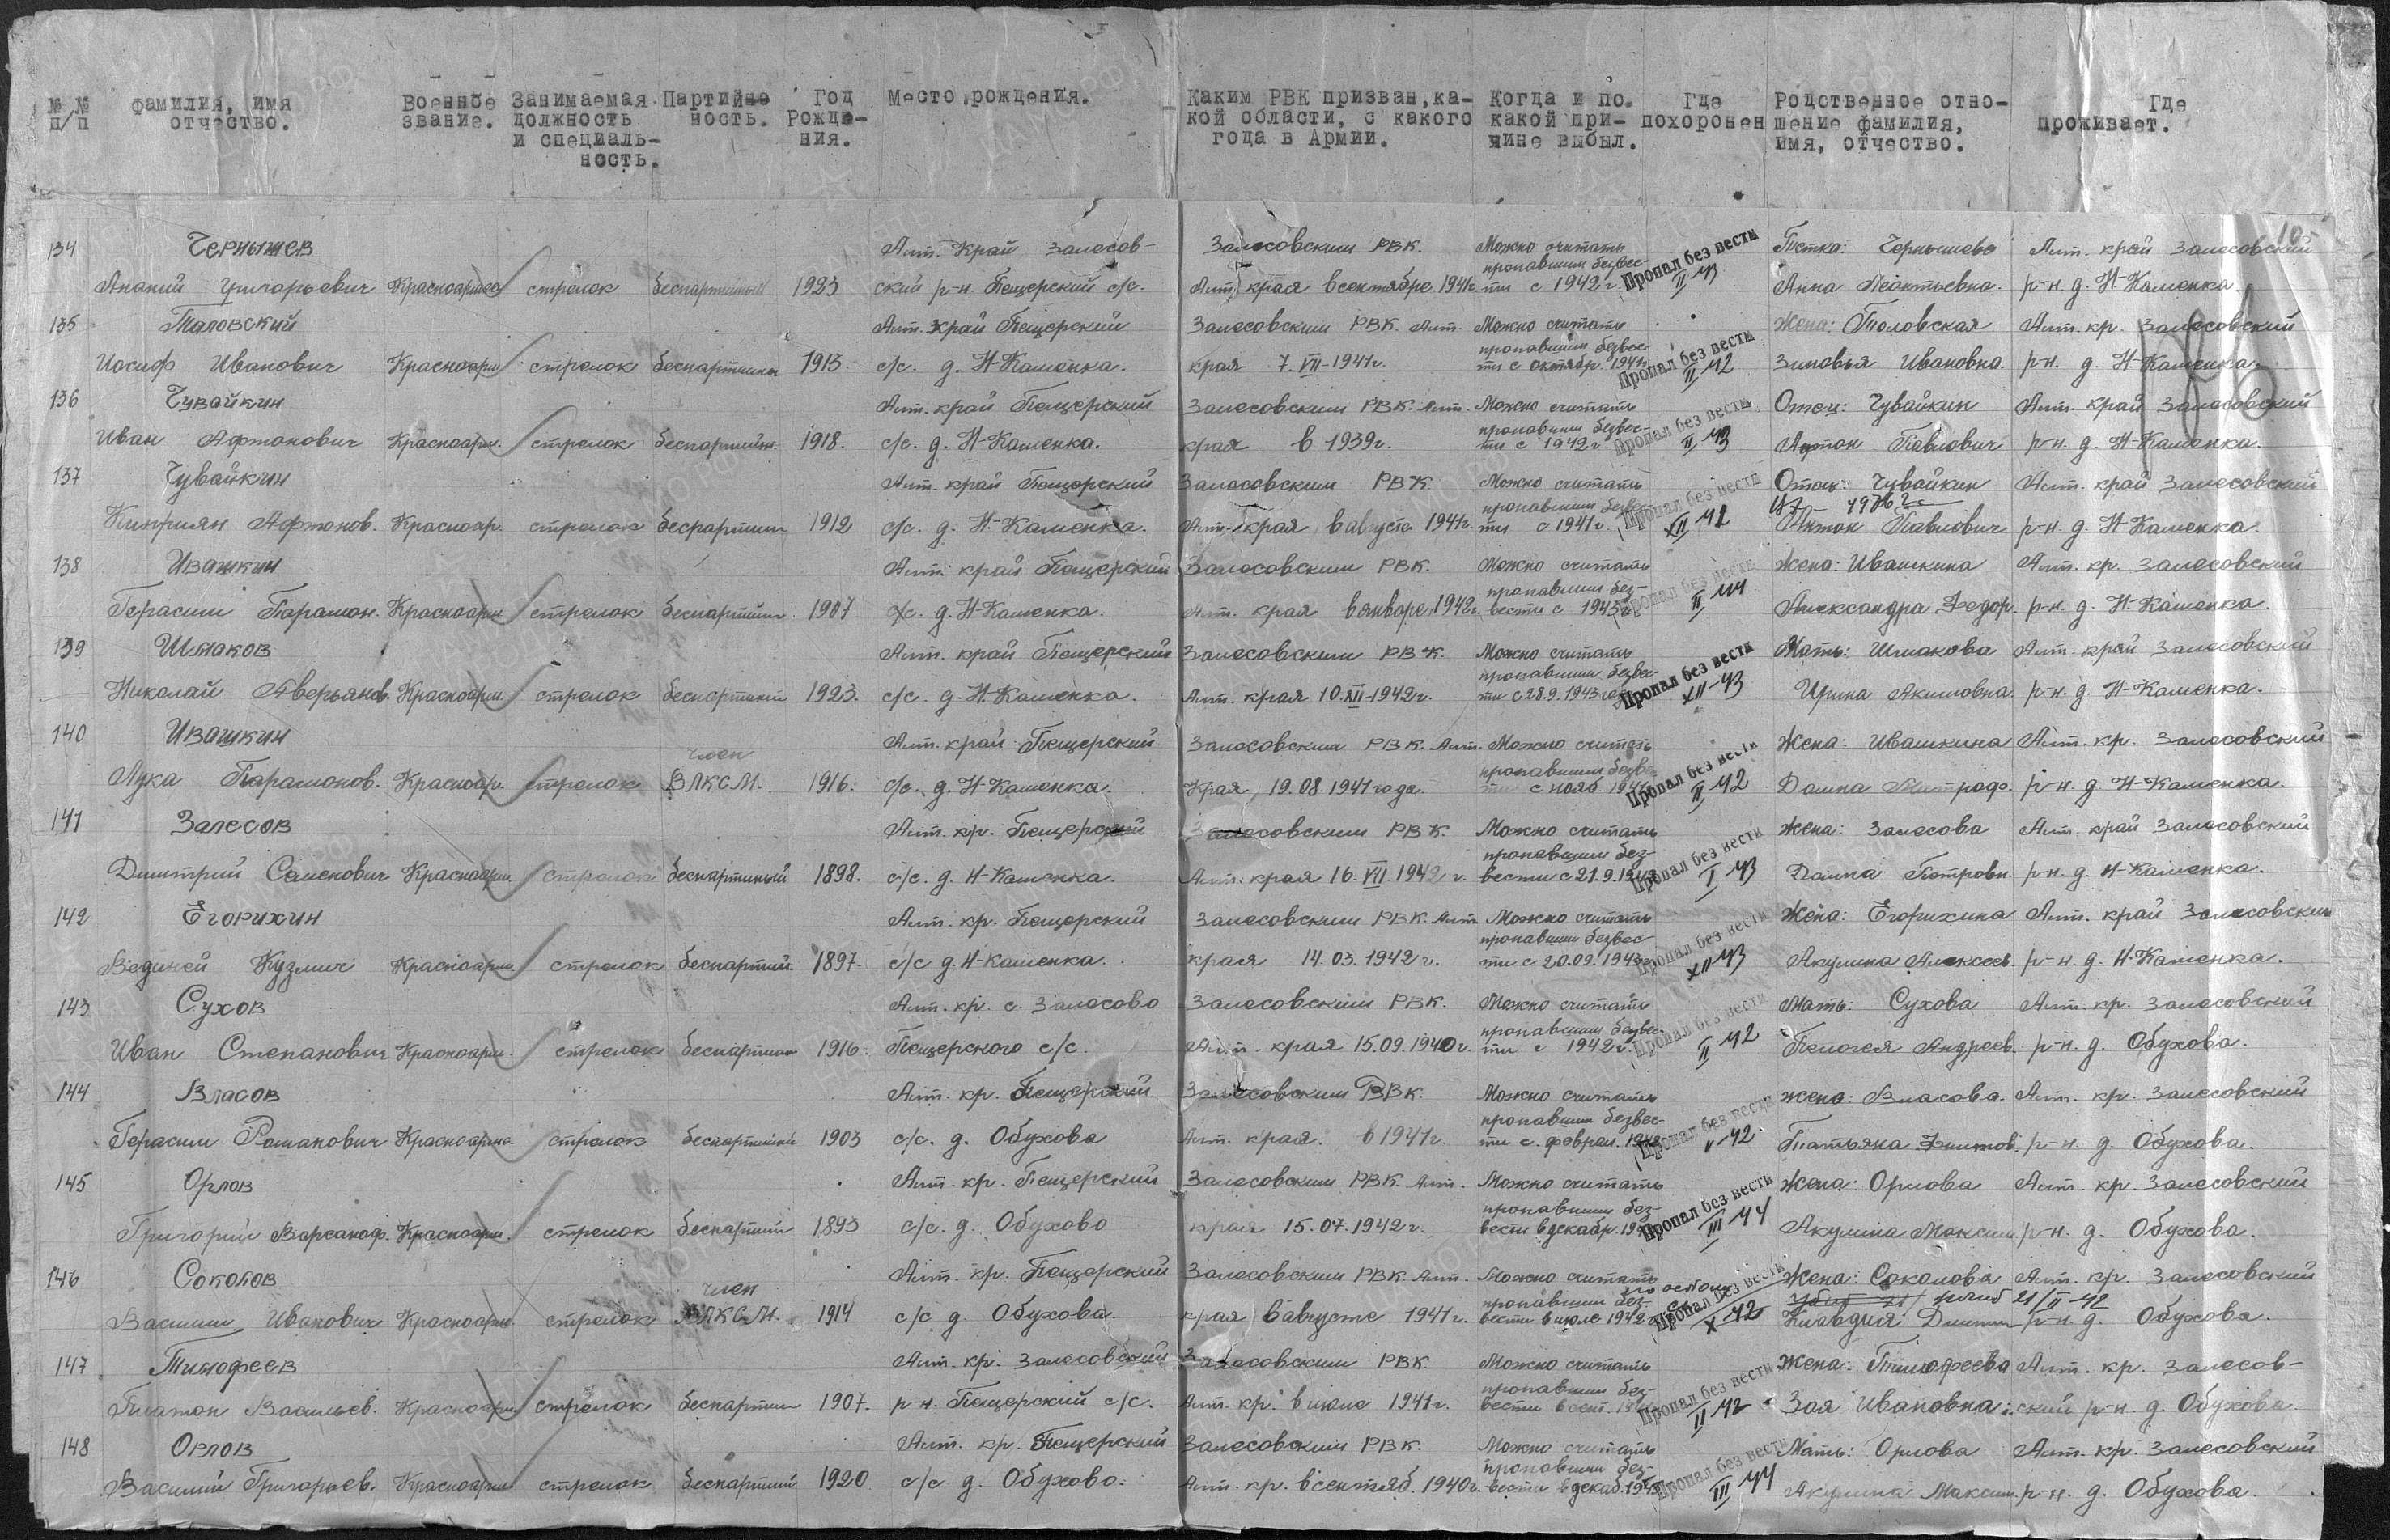 № № фамилия, имя Военное Занимаемая Партийно Год Место рождения. Каким РВК призван, ка- Когда и по Где Родственное отно- Где
п/п отчество. звание. должность ность. Рожде- кой области, с какого какой при- похоронен шение фамилия, проживает.
и специаль- ния. года в Армии. чине выбыл. имя, отчество.
ность.
134 Чернышев Алт. Край Залесов- Залесовским РВК. Можно считать Тетка: Чернышева Алт. край Залесовский
пропавшим безвес- Пропал без вести
Ананий Григорьевич Красноармеец стрелок беспартийный 1923 ский р-н. Пещерский с/с. Алт. края в сентябре. 1941г. ти с 1942 г. II 43 Анна Леонтьевна. р-н. д. Н-Каменка.
135 Таловский Алт. край Пещерский Залесовским РВК. Алт. Можно считать Жена: Таловская Алт. кр. Залесовский
пропавшим безвес- Пропал без вести
Иосиф Иванович Красноарм стрелок беспартийны 1913. с/с. д. Н-Каменка. края 7. VII-1941г. ти с октябр. 1941г. II 42 Зиновья Ивановна. р-н. д. Н-Каменка.
136 Чувайкин Алт. край Пещерский Залесовским РВК. Алт. Можно считать Отец: Чувайкин Алт. край Залесовский
пропавшим безвес- Пропал без вести
Иван Афтонович Красноарм. стрелок беспартийн. 1918. с/с. д. Н-Каменка. края в 1939г. ти с 1942 г. II 43 Афтон Павлович р-н. д. Н-Каменка.
137 Чувайкин Алт. край Пещерский Залесовским РВК. Можно считать Отец: Чувайкин Алт. край Залесовский
пропавшим безвес- Пропал без вести
Киприян Афтонов. Красноар. стрелок беспартийн 1912 с/с. д. Н-Каменка. Алт. края в августе 1941г. ти с 1941 г. XII 42 Антон Павлович р-н. д. Н-Каменка.
138 Ивашкин Алт. край Пещерский Залесовским РВК. Можно считать Жена: Ивашкина Алт. кр. Залесовский
пропавшим без- Пропал без вести
Герасим Парамон. Красноарм стрелок беспартийн. 1907 с/с. д. Н-Каменка. Алт. края в январе. 1942г. вести с 1943 г. II 44 Александра Федор. р-н. д. Н-Каменка.
139 Шмаков Алт. край Пещерский Залесовским РВК. Можно считать Мать: Шмакова Алт. край Залесовский
пропавшим безвес- Пропал без вести
Николай Аверьянов. Красноарм. стрелок беспартийн 1923. с/с. д. Н-Каменка. Алт. края 10.XII-1942г. ти с 28.9. 1943 XII-43 Ирина Акимовна. р-н. д. Н-Каменка.
140 Ивашкин член Алт. край Пещерский Залесовским РВК. Алт. Можно считать Жена: Ивашкина Алт. кр. Залесовский
пропавшим безвес- Пропал без вести
Лука Парамонов. Красноар. стрелок ВЛКСМ. 1916. с/с. д. Н-Каменка. края, 19.08.1941 года. ти с нояб. 1941 II 42 Домна Митроф. р-н. д Н-Каменка.
141 Залесов Алт. кр. Пещерский Залесовским РВК. Можно считать Жена: Залесова Алт. край Залесовский
пропавшим без- Пропал без вести
Дмитрий Семенович Красноарм. стрелок беспартийный 1898. с/с. д. Н-Каменка. Алт. края 16.VII.1942 г. вести с 21.9. I 43 Домна Петровн. р-н. д. Н-Каменка.
142 Егорихин Алт. кр. Пещерский Залесовским РВК Алт Можно считать Жена: Егорихина Алт. край Залесовский
пропавшим безвес- Пропал без вести
Кузмич Красноарм стрелок беспартий. 1897. с/с д. Н-Каменка. края 14.03.1942 г. ти с 20.09. 1943 XII 43 Акулина Алексеев. р-н. д. Н-Каменка.
143 Сухов Алт. кр. с. Залесово Залесовским РВК. Можно считать Мать: Сухова Алт. кр. Залесовский
пропавшим безвес- Пропал без вести
Иван Степанович Красноарм. стрелок беспартийн 1916. Пещерского с/с. Алт. края 15.09.1940г. ти с 1942 г. II 42 Пелогея Андреев. р-н. д. Обухова.
144 Власов Алт. кр. Пещерский Залесовским РВК. Можно считать жена: Власова. Алт. кр. Залесовский
пропавшим безвес- Пропал без вести
Герасим Романович Красноарме стрелок беспартийный 1903 с/с. д. Обухова Алт. края. в 1941г. ти с. феврал. 1942 V 42 Татьяна р-н. д. Обухова.
145 Орлов Алт. кр. Пещерский Залесовским РВК. Алт. Можно считать Жена: Орлова Алт. кр. Залесовский
пропавшим без- Пропал без вести
Григорий Варсаноф. Красноарм. стрелок беспартийн 1893 с/с. д. Обухово края 15.07.1942г. вести в декабр. III 44 Акулина Максим. р-н. д. Обухова.
146 Соколов член Алт. кр. Пещерский Залесовским РВК. Алт. Можно считать Жена: Соколова Алт. кр. Залесовский
пропавшим без- Пропал без вести погиб 21/II-42
Василий Иванович Красноарм стрелок ВЛКСМ. 1914 с/с д. Обухова. края в августе 1941 г. вести в июле 1942 X 42 Клавдия Дмитр р-н. д. Обухова.
147 Тимофеев Алт. кр. Залесовский Залесовским РВК Можно считать Жена: Тимофеева Алт. кр. Залесов-
пропавшим без- Пропал без вести
Платон Васильев. Красноарм стрелок беспартийн 1907. р-н. Пещерский с/с. Алт. кр. в июле 1941г. вести II 42 Зоя Ивановна. ский р-н. д. Обухова
148 Орлов Алт. кр. Пещерский Залесовским РВК. Можно считать Мать: Орлова Алт. кр. Залесовский
пропавшим без- Пропал без вести
Василий Григорьев. Красноарм стрелок беспартий 1920 с/с д. Обухово. Алт. кр. в сентяб. 1940г. вести в декаб. III 44 Акулина Максим. р-н. д. Обухова.